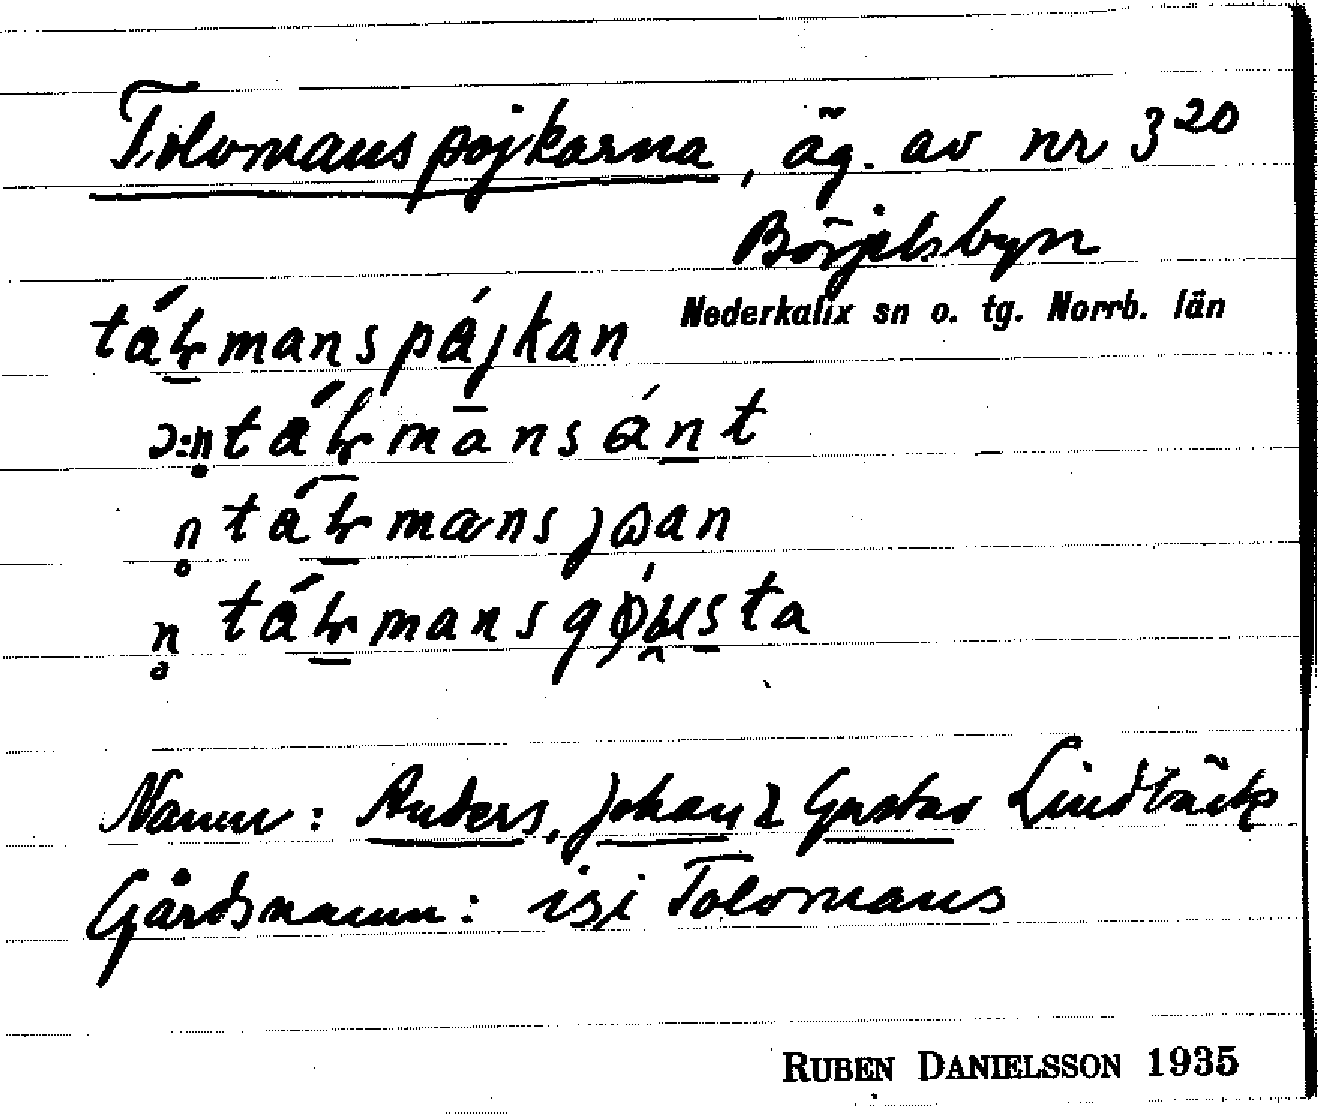 Tolomanspojkarna, äg. av nr 3²⁰
Börjelsbyn
Nederkalix sn o. tg. Norrb. län
táɽmanspájkan
ɔ:n táɽmānsánt
n táɽmansjɷan
n táɽmansgǿusta
Namn: Anders, Johan & Gustav Lindbäck
Gårdsnamn: isi Tolomans
RUBEN DANIELSSON 1935